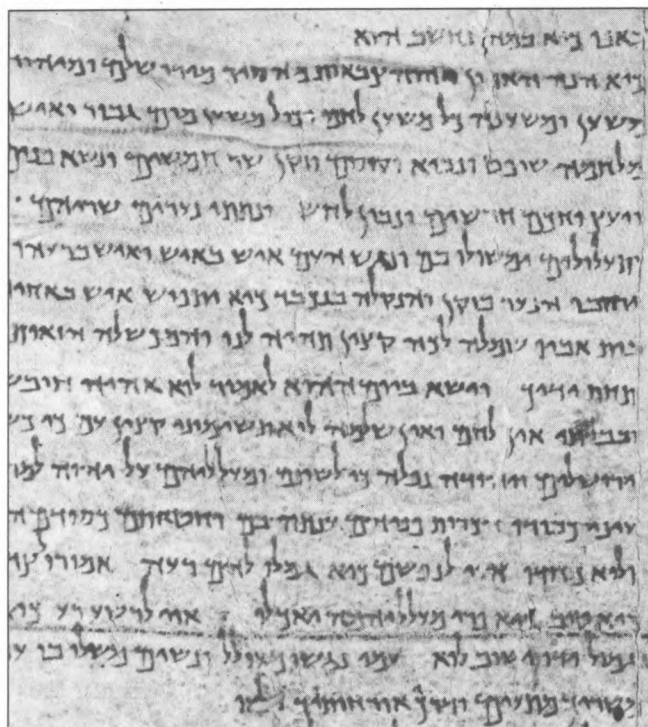 באפו כיא במה נחשב הוא
כיא הנה האדון יהוה צבאות מסיר מירושלים ומיהוד
משען ומשענה כול משען לחם וכול משען מים גבור ואיש
מלחמה שופט ונביא וקוסם וזקן שר חמשים ונשא פנים
ויועץ וחכם חרשים ונבון לחש ונתתי נערים שריהם
ותעלולים ימשולו בם ונגש העם איש באיש ואיש ברעהו
ירהבו הנער בזקן והנקלה בנכבד כיא יתפוש איש באחיה
בית אביו שמלה לכה קצין תהיה לנו והמכשלה הזואת
תחת ידיך וישא ביום ההוא לאמור לוא אהיה חובש
ובביתי אין לחם ואין שמלה לוא תשימוני קצין עם כי כש
ירושלים ויהודה נפלה כי לשונם ומעלליהם על יהוה למר
עיני כבודו הכרת פניהם ענתה בם וחטאתם כסודם ה
ולוא כחדו אוי לנפשם כיא גמלו להם רעה אמורו לצד
כיא טוב כיא פרי מעלליהמה יואכלו אוי לרשע רע כיא
גמול ידיו ישוב לוא עמי נגשו מעולל ונשים משלו בו ע
מאשריך מתעים ודרך אורחותיך בלעו